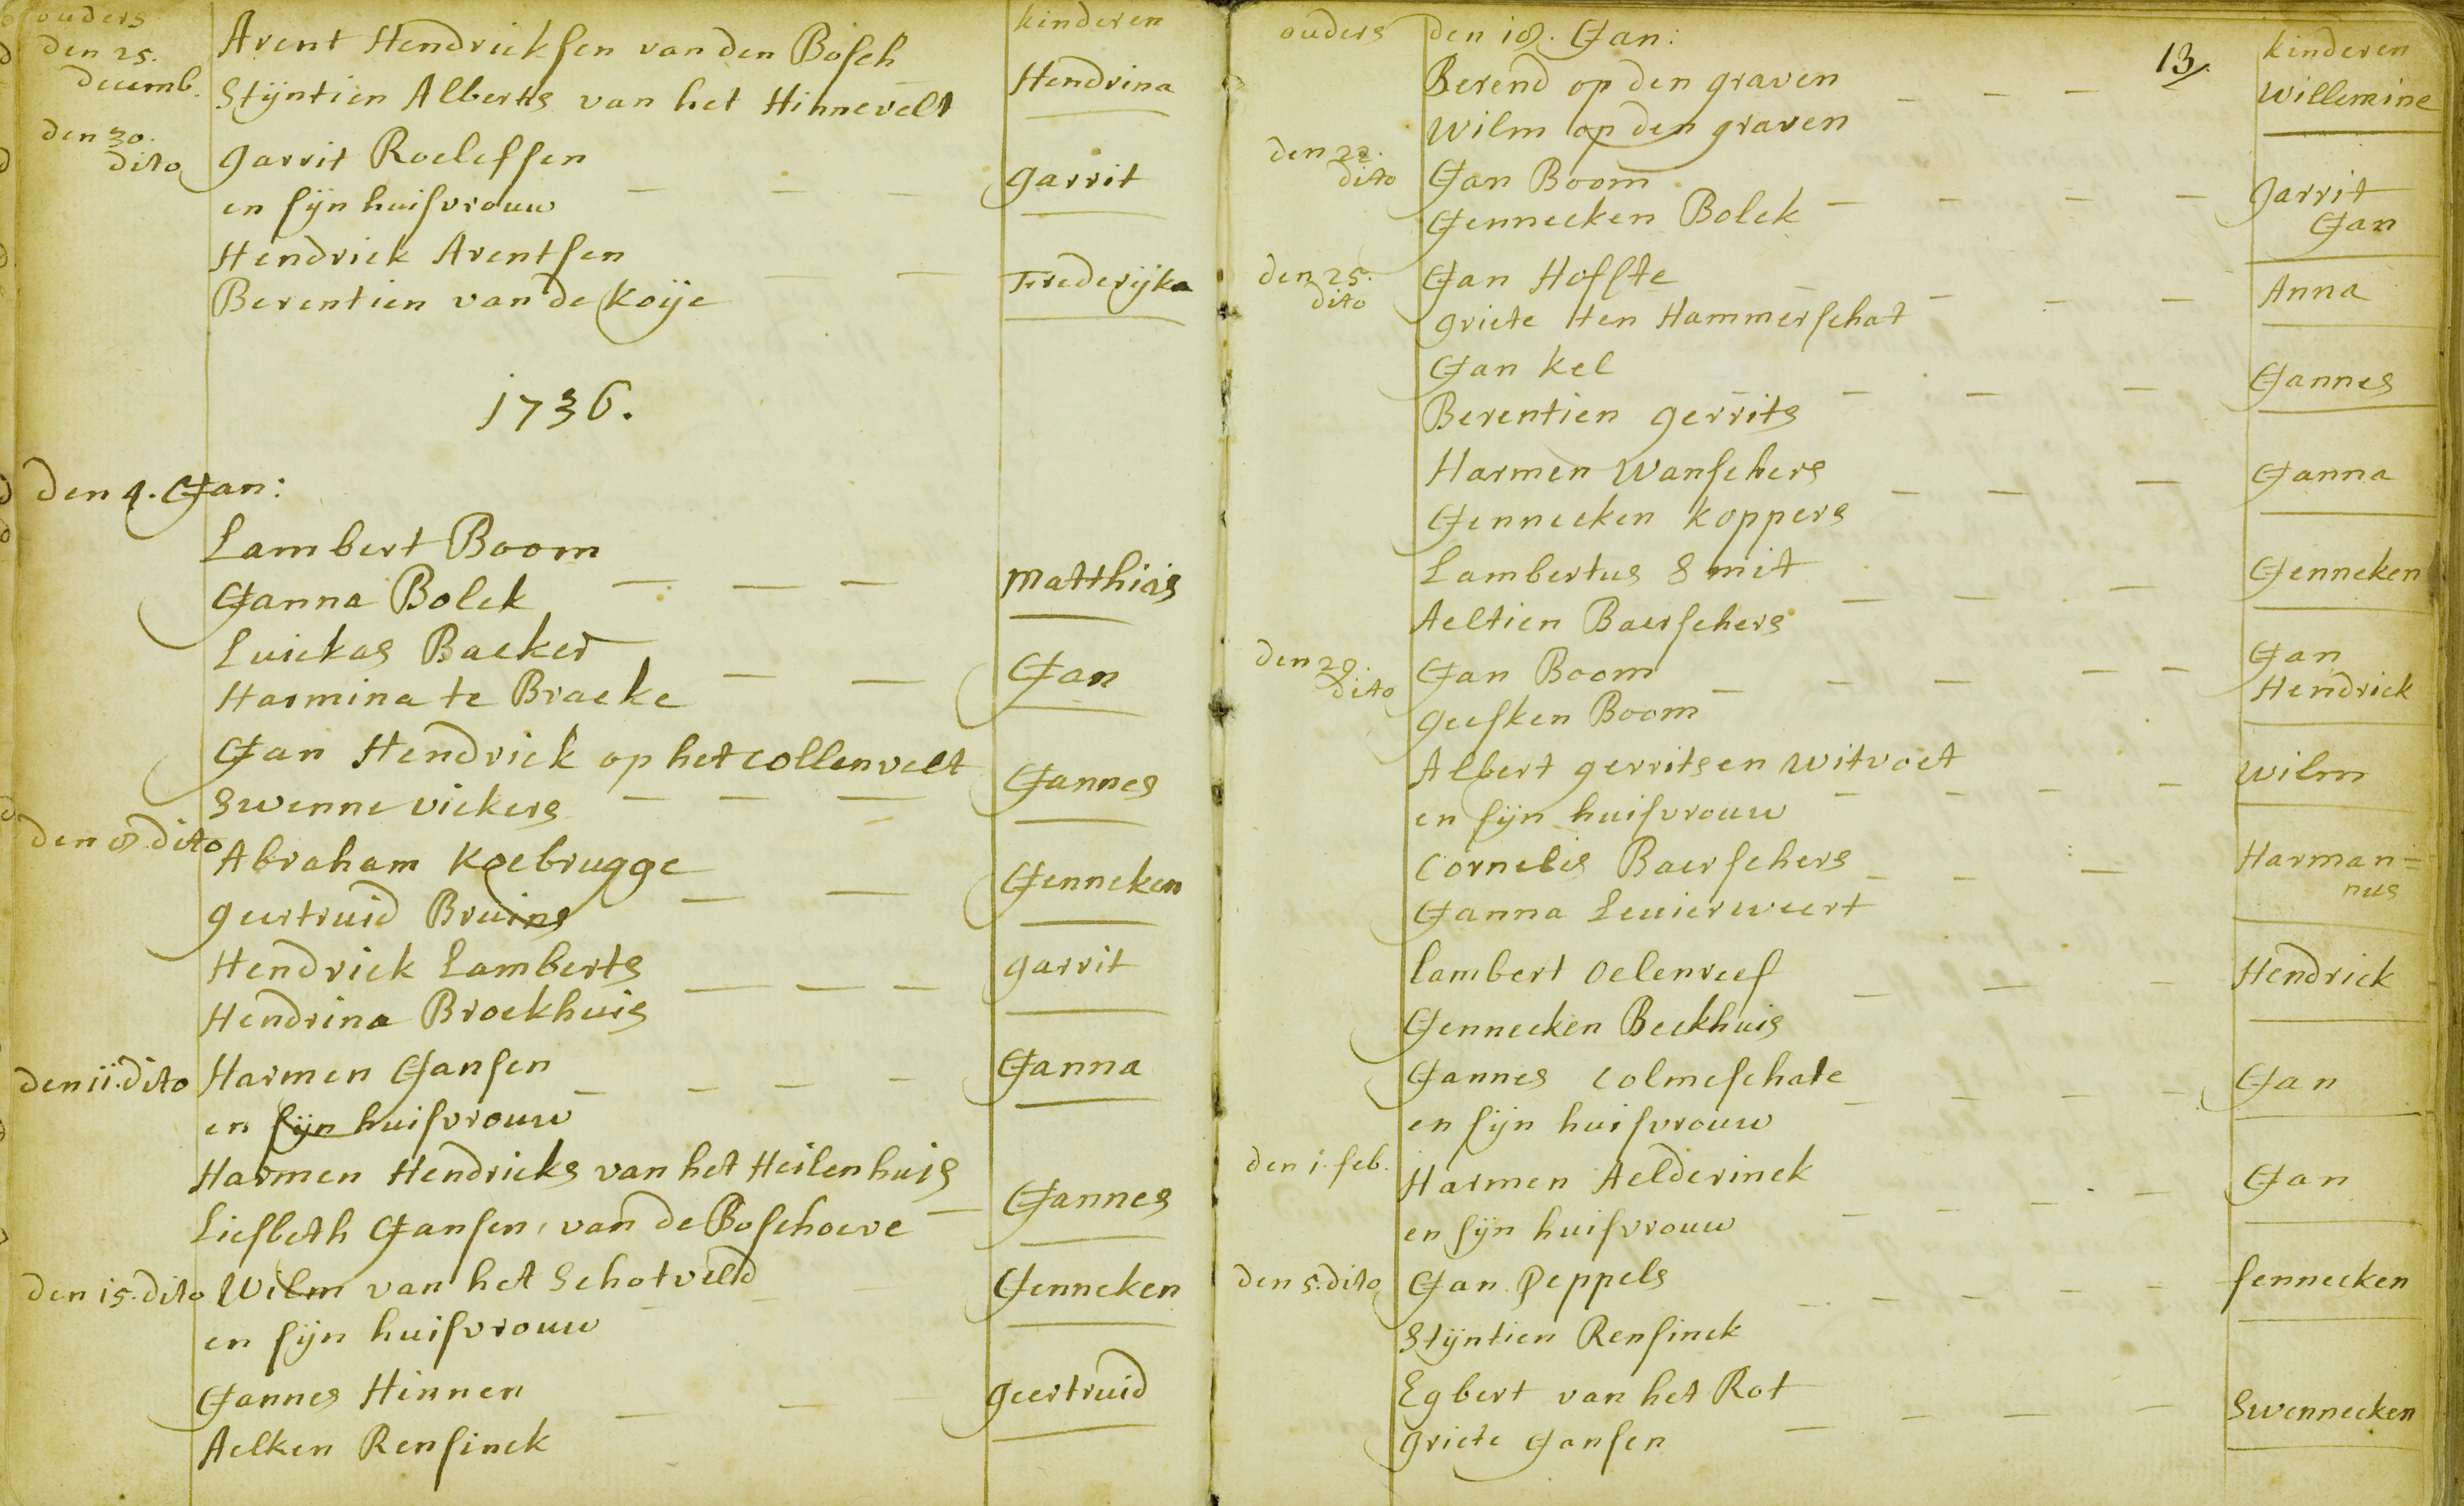 ouders
kinderen
den 25. decemb.
Arent Hendricksen van den Bosch
Stijntien Alberts van het Hinnevelt
Hendrina
den 30. dito
Garrit Roelefsen
en sijn huisvrouw
Garrit
Hendrick Arentsen
Berentien van de Koije
Frederijka
1736.
den 4. Jan:
Lambert Boom
Janna Bolck
Matthias
Luickas Backer
Harmina te Bracke
Jan
Jan Hendrick op het collenvelt
Swenne vickers
Jannes
den 8 dito
Abraham Koebrugge
Geertruid Bruins
Jenneken
Hendrick Lamberts
Hendrina Broekhuis
Garrit
den 11. dito
Harmen Jansen
en sijn huisvrouw
Janna
Harmen Hendricks van het Heilenhuis
Liesbeth Jansen, van de Boschoeve
Jannes
den 15. dito
Wilm van het Schotveld
en sijn huisvrouw
Jenneken
Jannes Hinnen
Aelken Rensinck
Geertruid
ouders
den 18. Jan:
13
kinderen
Berend op den graven
Wilm op den graven
Willemine
den 22. dito
Jan Boom
Jennecken Bolck
Garrit
Jan
den 25. dito
Jan Hoffte
Griete ten Hammerschat
Anna
Jan Kel
Berentien Gerrits
Jannes
Harmen Wanschers
Jennecken Koppers
Janna
Lambertus Smit
Aeltien Baerschers
Jenneken
den 29. dito
Jan Boom
Geesken Boom
Jan
Hendrick
Albert Gerritsen Witvoet
en sijn huisvrouw
Wilm
Cornelis Baerschers
Janna Leuierweert
Harman=
nus
Lambert Oelenreef
Jennecken Beekhuis
Hendrick
Jannes Colmeschate
en sijn huisvrouw
Jan
den 1. feb.
Harmen Aelderinck
en sijn huisvrouw
Jan
den 5. dito
Jan Peppels
Stijntien Rensinck
fennecken
Egbert van het Rot
Griete Jansen
Swennecken